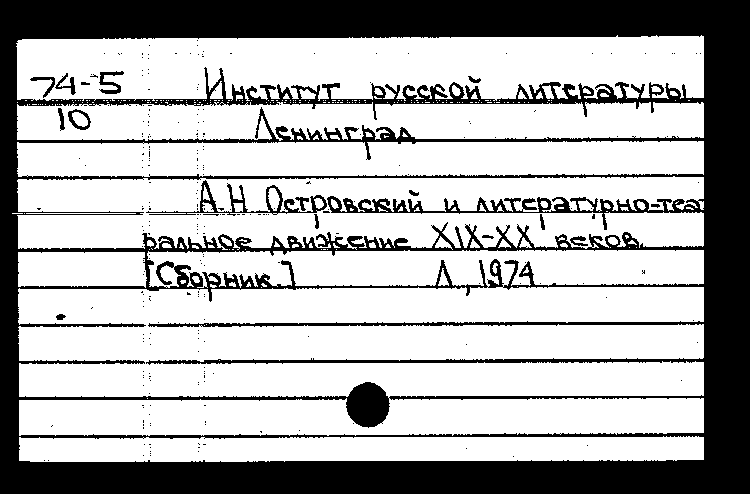 74-5 Институт русской литературы
10 Ленинград
А.Н. Островский и литературно-теат
ральное движение XIX-XX веков.
[Сборник.] Л., 1974.